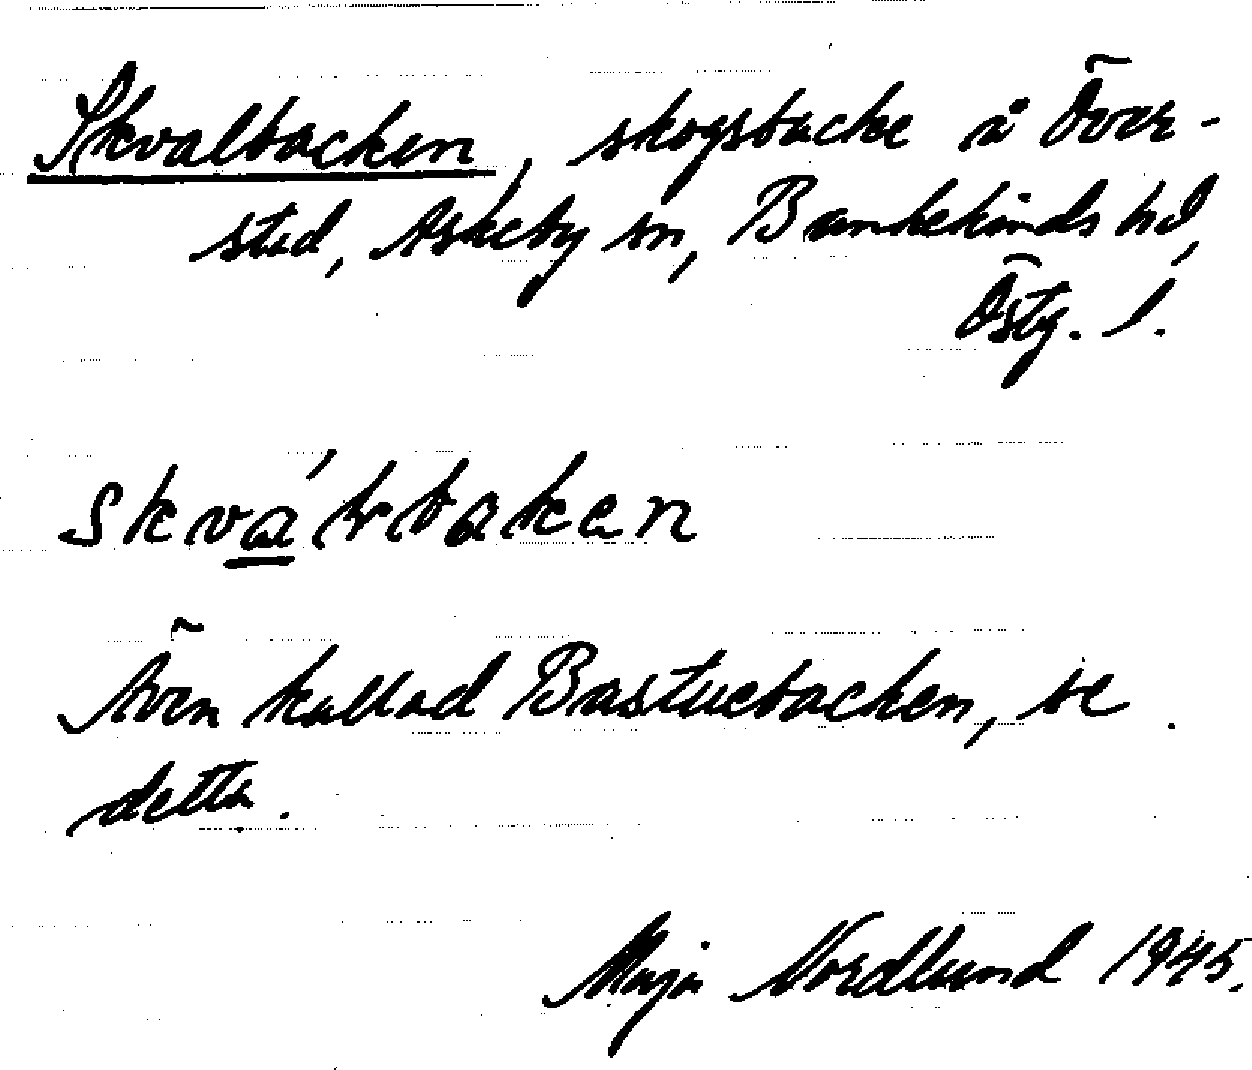 Skvalbacken, skogsbacke å Över-
stad, Askeby sn, Bankekinds hd,
Östg. l.
skva̲´lbaken
Även kallad Bastuebacken, se
detta.
Maja Nordlund 1945.